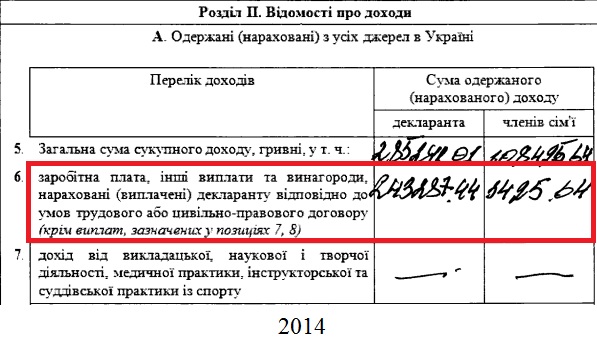 Розділ II. Відомості про доходи
А. Одержані (нараховані) з усіх джерел в Україні
Перелік доходів
Сума одержаного
(нарахованого) доходу
декларанта
членів сім'ї
5. Загальна сума сукупного доходу, гривні, у т. ч.:
6. заробітна плата, інші виплати та винагороди,
нараховані (виплачені) декларанту відповідно до
умов трудового або цивільно-правового договору
(крім виплат, зазначених у позиціях 7, 8)
243287.44
7. дохід від викладацької, наукової і творчої
діяльності, медичної практики, інструкторської та
суддівської практики із спорту
2014